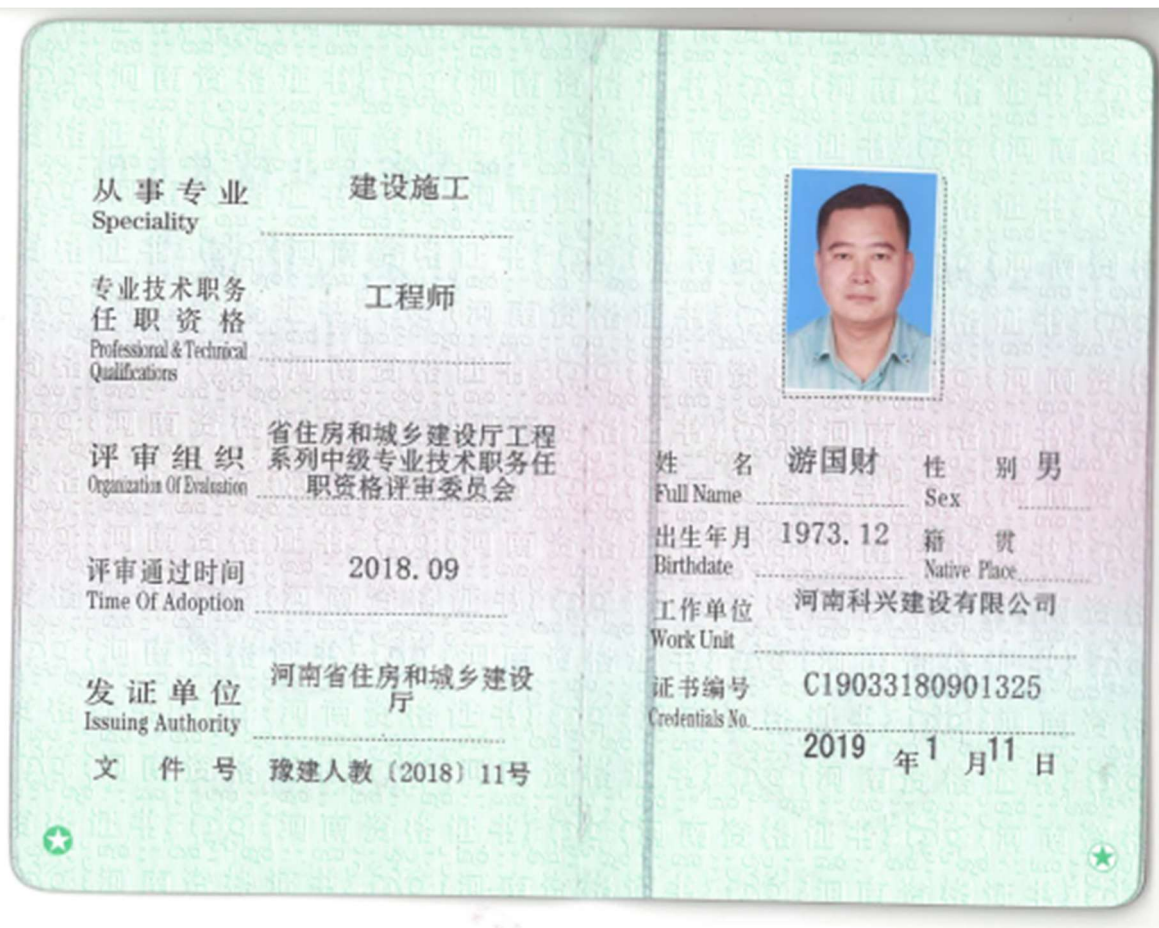 从事专业 建设施工
Speciality
专业技术职务 工程师
任职资格
Professional & Technical
Qualifications
省住房和城乡建设厅工程
评审组织 系列中级专业技术职务任
Organization Of Evaluation 职资格评审委员会
评审通过时间 2018.09
Time Of Adoption
发证单位 河南省住房和城乡建设
Issuing Authority 厅
文件号 豫建人教〔2018〕11号
姓名 游国财 性别 男
Full Name Sex
出生年月 1973.12 籍贯
Birthdate Native Place
工作单位 河南科兴建设有限公司
Work Unit
证书编号 C19033180901325
Credentials No.
2019 年 1 月 11 日